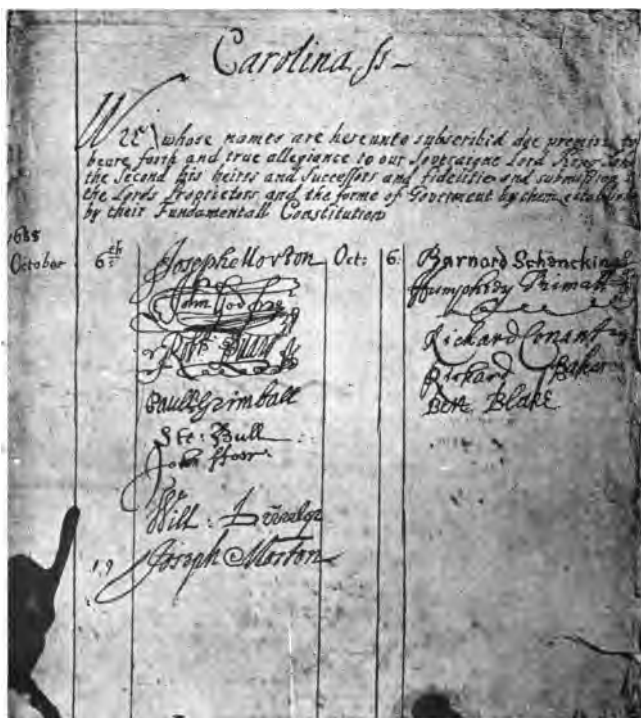 Carolina ss
WE whose names are hereunto subscribid doe promise to
beare faith and true allegiance to our Soveraigne Lord King
the Second his heires and Successors and fidelitie and submission
the Lords Proprietors and the forme of Goverment by them establis
by their Fundamentall Constitutions
1685
October 6th Joseph Morton
John Godfrey
Robt: Quary
Paull Grimball
Ste: Bull
John ffarr
Will:
19 Joseph Morton
Oct: 6: Barnard Schencking
Humphrey Primatt
Richard Conant
Richard Baker
Ben: Blake